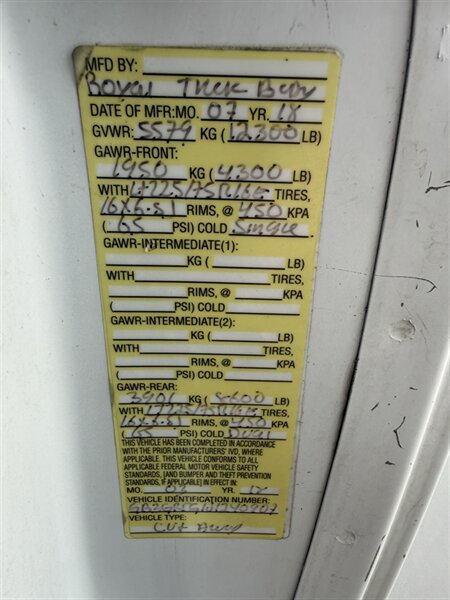 MFD BY:
Royal Truck Body
DATE OF MFR: MO. 07 YR. 18
GVWR: 5579 KG (12300 LB)
GAWR-FRONT:
1950 KG (4300 LB)
WITH LT225/75R16E TIRES,
16X6-S1 RIMS, @ 450 KPA
(65 PSI) COLD Single
GAWR-INTERMEDIATE(1):
KG ( LB)
WITH TIRES,
RIMS, @ KPA
( PSI) COLD
GAWR-INTERMEDIATE(2):
KG ( LB)
WITH TIRES,
RIMS, @ KPA
( PSI) COLD
GAWR-REAR:
3901 KG (8600 LB)
WITH LT225/75R16E TIRES,
16X6-S1 RIMS, @ 450 KPA
(65 PSI) COLD Dual
THIS VEHICLE HAS BEEN COMPLETED IN ACCORDANCE
WITH THE PRIOR MANUFACTURERS' IVD, WHERE
APPLICABLE. THIS VEHICLE CONFORMS TO ALL
APPLICABLE FEDERAL MOTOR VEHICLE SAFETY
STANDARDS, [AND BUMPER AND THEFT PREVENTION
STANDARDS, IF APPLICABLE] IN EFFECT IN:
MO. YR.
VEHICLE IDENTIFICATION NUMBER:
VEHICLE TYPE:
Cut Away